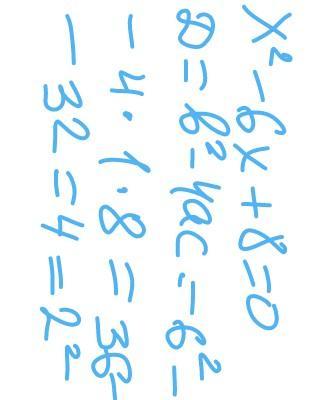 x² - 6x + 8 = 0
D = b² - 4ac = -6² -
- 4 · 1 · 8 = 36 -
- 32 = 4 = 2²